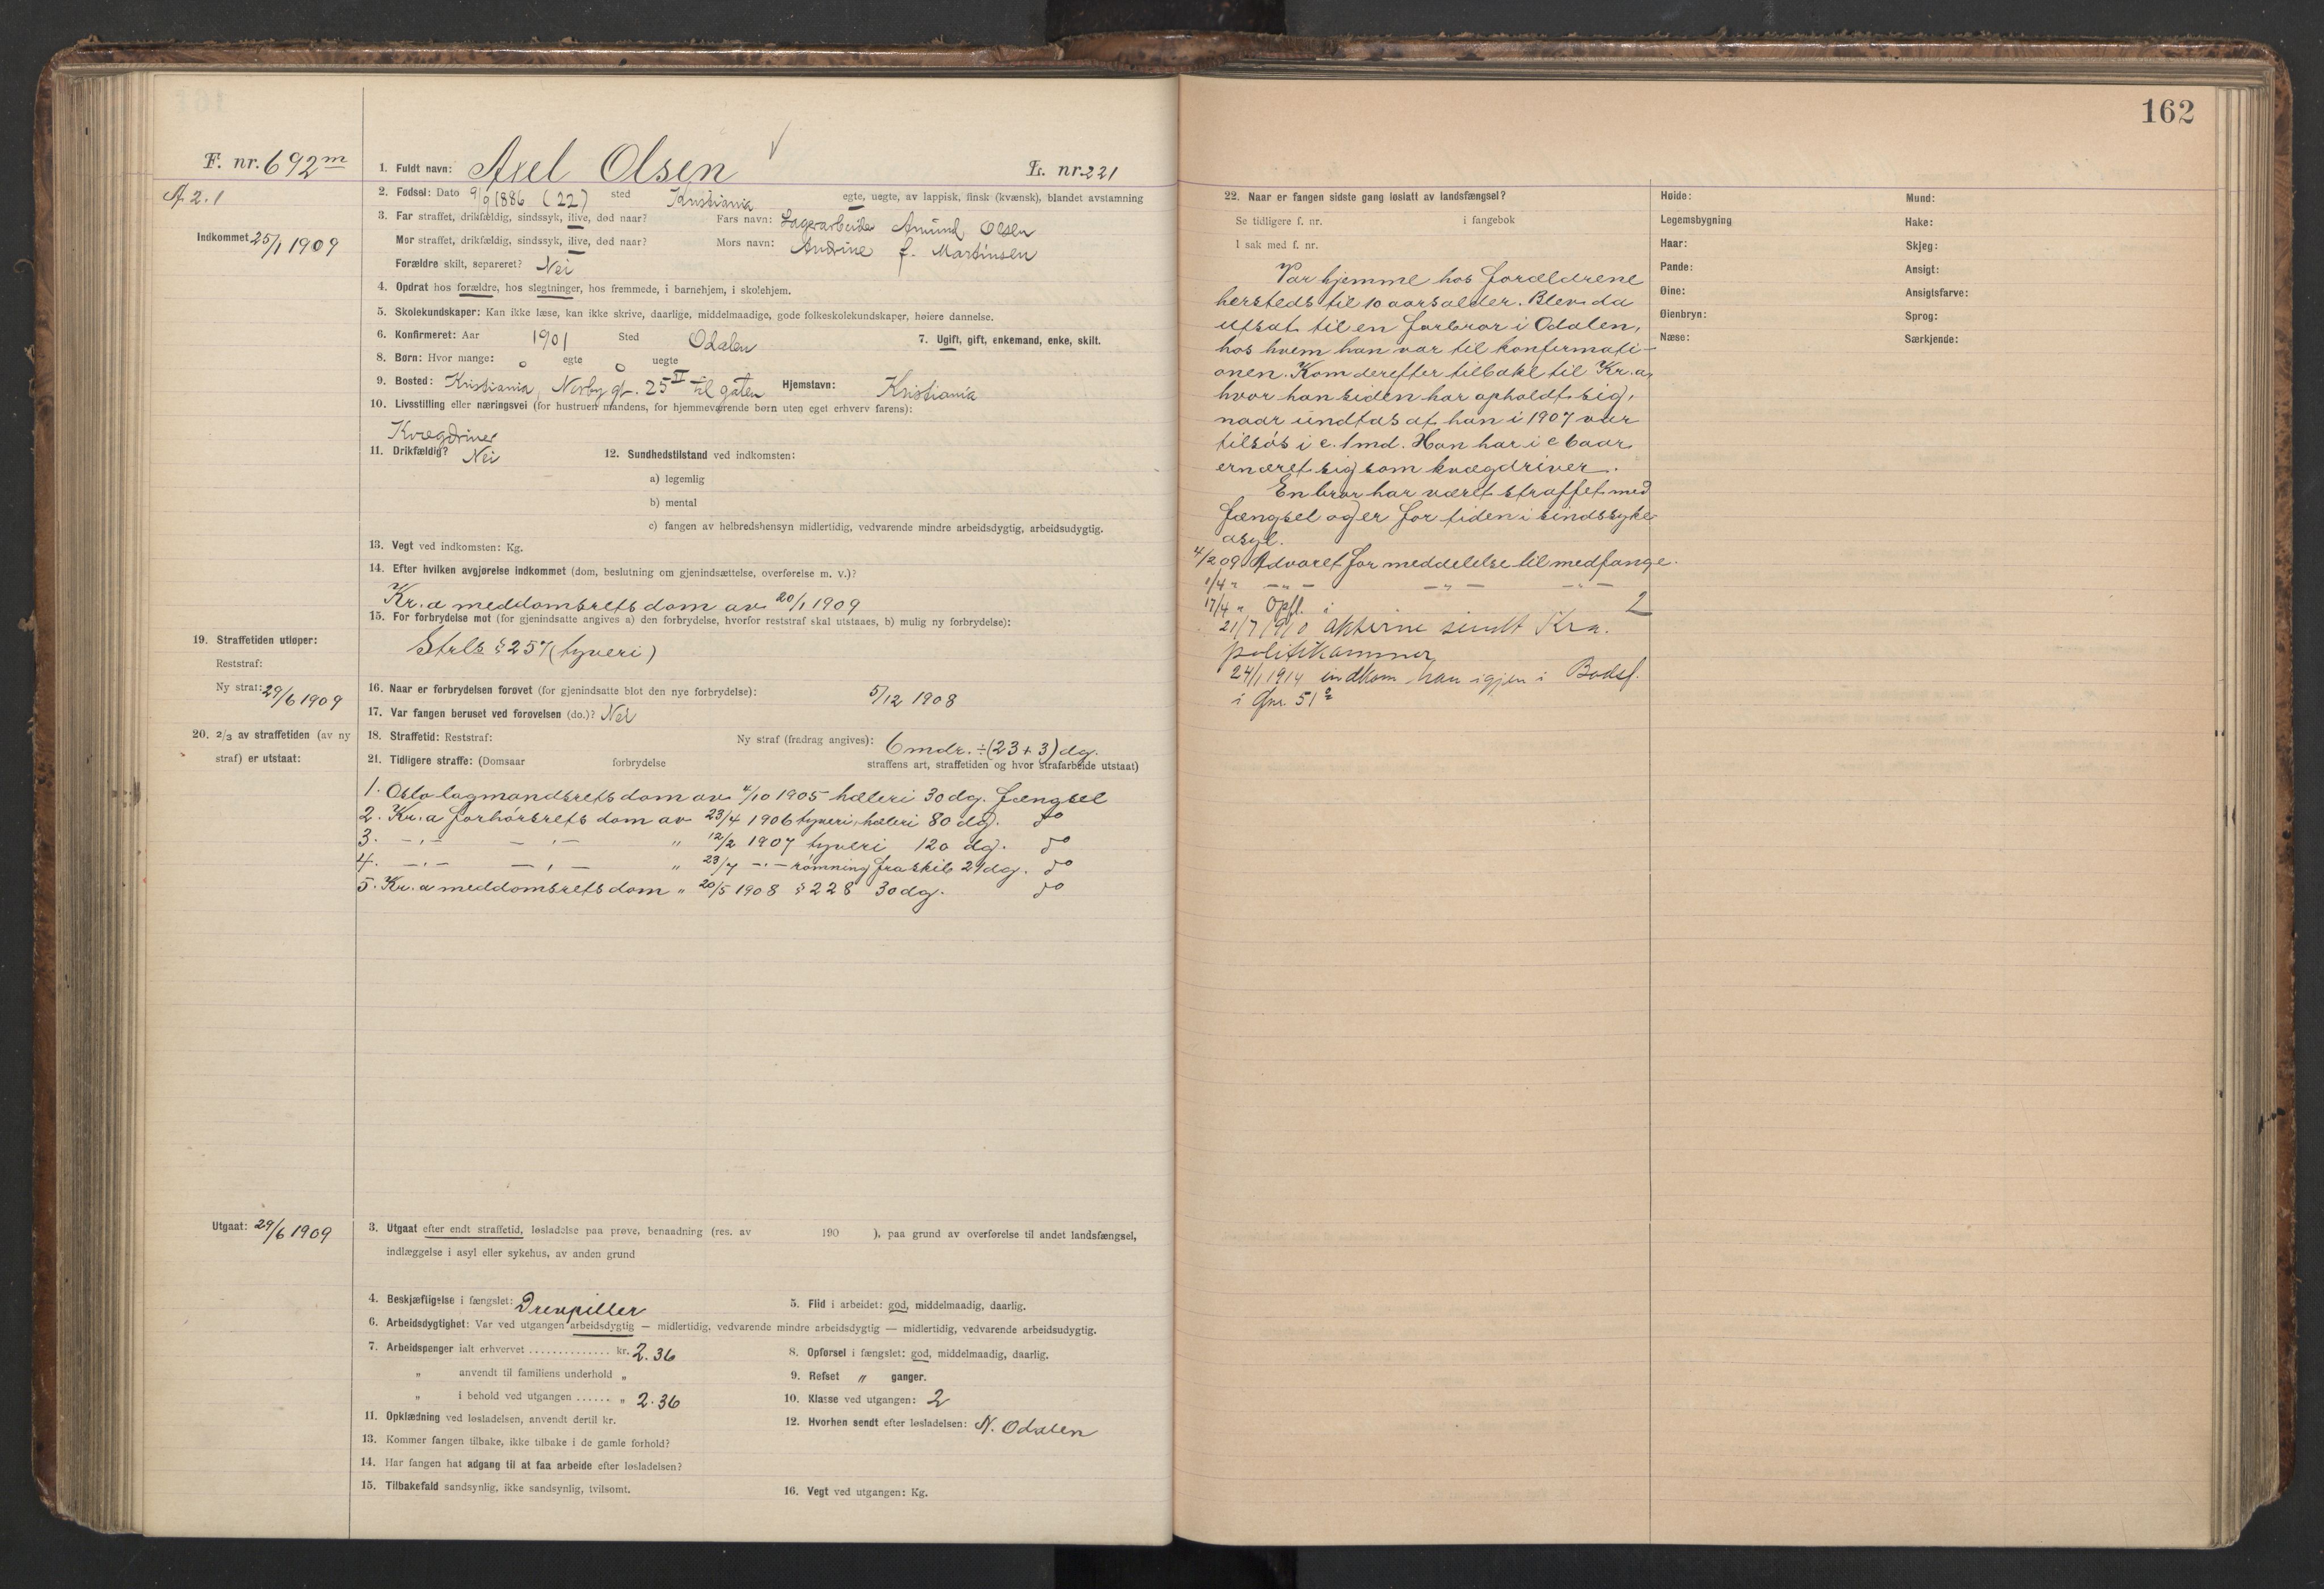 162
F. nr. 692 m
A 2.1
Indkommet 25/1 1909
1. Fuldt navn: Axel Olsen L. nr. 221
2. Fødsel: Dato 9/9 1886 (22) sted Kristiania egte, uegte, av lappisk, finsk (kvænsk), blandet avstamning
3. Far straffet, drikfældig, sindssyk, ilive, død naar? Fars navn: Lagerarbeider Amund Olsen
Mor straffet, drikfældig, sindssyk, ilive, død naar? Mors navn: Andrine f. Martinsen
Forældre skilt, separeret? Nei
4. Opdrat hos forældre, hos slegtninger, hos fremmede, i barnehjem, i skolehjem.
5. Skolekundskaper: Kan ikke læse, kan ikke skrive, daarlige, middelmaadige, gode folkeskolekundskaper, høiere dannelse.
6. Konfirmeret: Aar 1901 Sted Odalen 7. Ugift, gift, enkemand, enke, skilt.
8. Børn: Hvor mange: 0 egte 0 uegte
9. Bosted: Kristiania, Norbygt. 25 II til gaten Hjemstavn: Kristiania
10. Livsstilling eller næringsvei (for hustruer mandens, for hjemmeværende børn uten eget erhverv farens):
Kvægdriver
11. Drikfældig? Nei 12. Sundhedstilstand ved indkomsten:
a) legemlig
b) mental
c) fangen av helbredshensyn midlertidig, vedvarende mindre arbeidsdygtig, arbeidsudygtig.
13. Vegt ved indkomsten: Kg.
14. Efter hvilken avgjørelse indkommet (dom, beslutning om gjenindsættelse, overførelse m. v.)?
Kr.a meddomsrets dom av 20/1 1909
15. For forbrydelse mot (for gjenindsatte angives a) den forbrydelse, hvorfor reststraf skal utstaaes, b) mulig ny forbrydelse):
Strls § 257 (tyveri)
19. Straffetiden utløper:
Reststraf:
Ny straf: 29/6 1909
16. Naar er forbrydelsen forøvet (for gjenindsatte blot den nye forbrydelse): 5/12 1908
17. Var fangen beruset ved forøvelsen (do.)? Nei
20. 2/3 av straffetiden (av ny
straf) er utstaat:
18. Straffetid: Reststraf: Ny straf (fradrag angives): 6 mdr. ÷ (23 + 3) dg.
21. Tidligere straffe: (Domsaar forbrydelse straffens art, straffetiden og hvor strafarbeide utstaat)
1. Oslo lagmandsrets dom av 4/10 1905 hæleri 30 dg. fængsel
2. Kr.a forhørsrets dom av 23/4 1906 tyveri, hæleri 80 dg. do
3. -"- -"- " 12/2 1907 tyveri 120 dg. do
4. -"- -"- " 23/7 -"- rømning fra skib 21 dg. do
5. Kr.a meddomsrets dom " 20/5 1908 § 228 30 dg. do
Utgaat: 29/6 1909
3. Utgaat efter endt straffetid, løsladelse paa prøve, benaadning (res. av 190 ), paa grund av overførelse til andet landsfængsel,
indlæggelse i asyl eller sykehus, av anden grund
4. Beskjæftigelse i fængslet: Drevpiller 5. Flid i arbeidet: god, middelmaadig, daarlig.
6. Arbeidsdygtighet: Var ved utgangen arbeidsdygtig — midlertidig, vedvarende mindre arbeidsdygtig — midlertidig, vedvarende arbeidsudygtig.
7. Arbeidspenger ialt erhvervet .............. kr. 2.36 8. Opførsel i fængslet: god, middelmaadig, daarlig.
" anvendt til familiens underhold " 9. Refset " ganger.
" i behold ved utgangen ...... " 2.36 10. Klasse ved utgangen: 2
11. Opklædning ved løsladelsen, anvendt dertil kr. 12. Hvorhen sendt efter løsladelsen: N. Odalen
13. Kommer fangen tilbake, ikke tilbake i de gamle forhold?
14. Har fangen hat adgang til at faa arbeide efter løsladelsen?
15. Tilbakefald sandsynlig, ikke sandsynlig, tvilsomt. 16. Vegt ved utgangen: Kg.
22. Naar er fangen sidste gang løslatt av landsfængsel?
Se tidligere f. nr. i fangebok
I sak med f. nr.
Var hjemme hos forældrene
hersteds til 10 aars alder. Blev da
utsat til en farbror i Odalen,
hos hvem han var til konfirmati-
onen. Kom derefter tilbake til Kr.a,
hvor han siden har opholdt sig,
naar undtas at han i 1907 var
tilsjøs i c. 1 md. Han har i c 6 aar
ernæret sig som kvægdriver.
En bror har været straffet med
fængsel og er for tiden i sindssyke-
asyl.
4/2 09 Advaret for meddelelse til medfange.
1/4 " -"- -"- -"-
17/4 " Opfl. i 2
21/7 1910 Akterne sendt Kra.
politikammer
24/1 1914 indkom han igjen i Bodsf.
i Gnr. 51
Høide: Mund:
Legemsbygning Hake:
Haar: Skjeg:
Pande: Ansigt:
Øine: Ansigtsfarve:
Øienbryn: Sprog:
Næse: Særkjende: